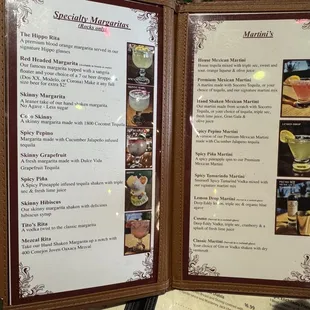 Specialty Margaritas
The Hippo Rita
A premium blood orange margarita served in our
signature Hippo glasses
Red Headed Margarita
Our famous margarita topped with a sangria
floater and your choice of a 7 oz beer dropped
Dos XX, Modelo, or Corona) Make any full
Skinny Margarita
A leaner take of our hand shaken margarita
No Agave - Less Sugar
Skinny margarita made with 1800 Coconut Tequila
Spicy Pepino
Margarita made with Cucumber Jalapeño infused
tequila
Skinny Grapefruit
A fresh margarita made with Dulce Vida
Grapefruit Tequila
Spicy Piña
A Spicy Pineapple infused tequila shaken with triple
sec & fresh lime juice
Skinny Hibiscus
Our skinny margarita shaken with delicious
hibiscus syrup
Tito's Rita
A vodka twist to the classic margarita
Mezcal Rita
Take our Hand Shaken Margarita up a notch with
400 Conejos Joven Oaxaca Mezcal
Martini's
House Mexican Martini
House tequila mixed with triple sec, sweet and
sour, orange liqueur & olive juice
Premium Mexican Martini
Our martini made from scratch with
Tequila, triple sec, fresh lime juice, orange
Hand Shaken Mexican Martini
Our martini made from scratch with
Tequila, triple sec, fresh orange juice, fresh
lime juice,
& olive juice
Spicy Pepino Martini
made with Cucumber Jalapeño tequila
Spicy Piña Martini
A spicy pineapple spin on our Premium
Mexican Martini
Spicy Tamarindo Martini
Smirnoff Spicy Tamarind Vodka mixed with
Lemon Drop Martini
Deep Eddy Lemon Vodka, triple sec,
Deep Eddy Vodka, triple sec, cranberry, & a
splash of fresh lime juice
Classic Martini
Your choice of Gin or Vodka shaken with dry
vermouth